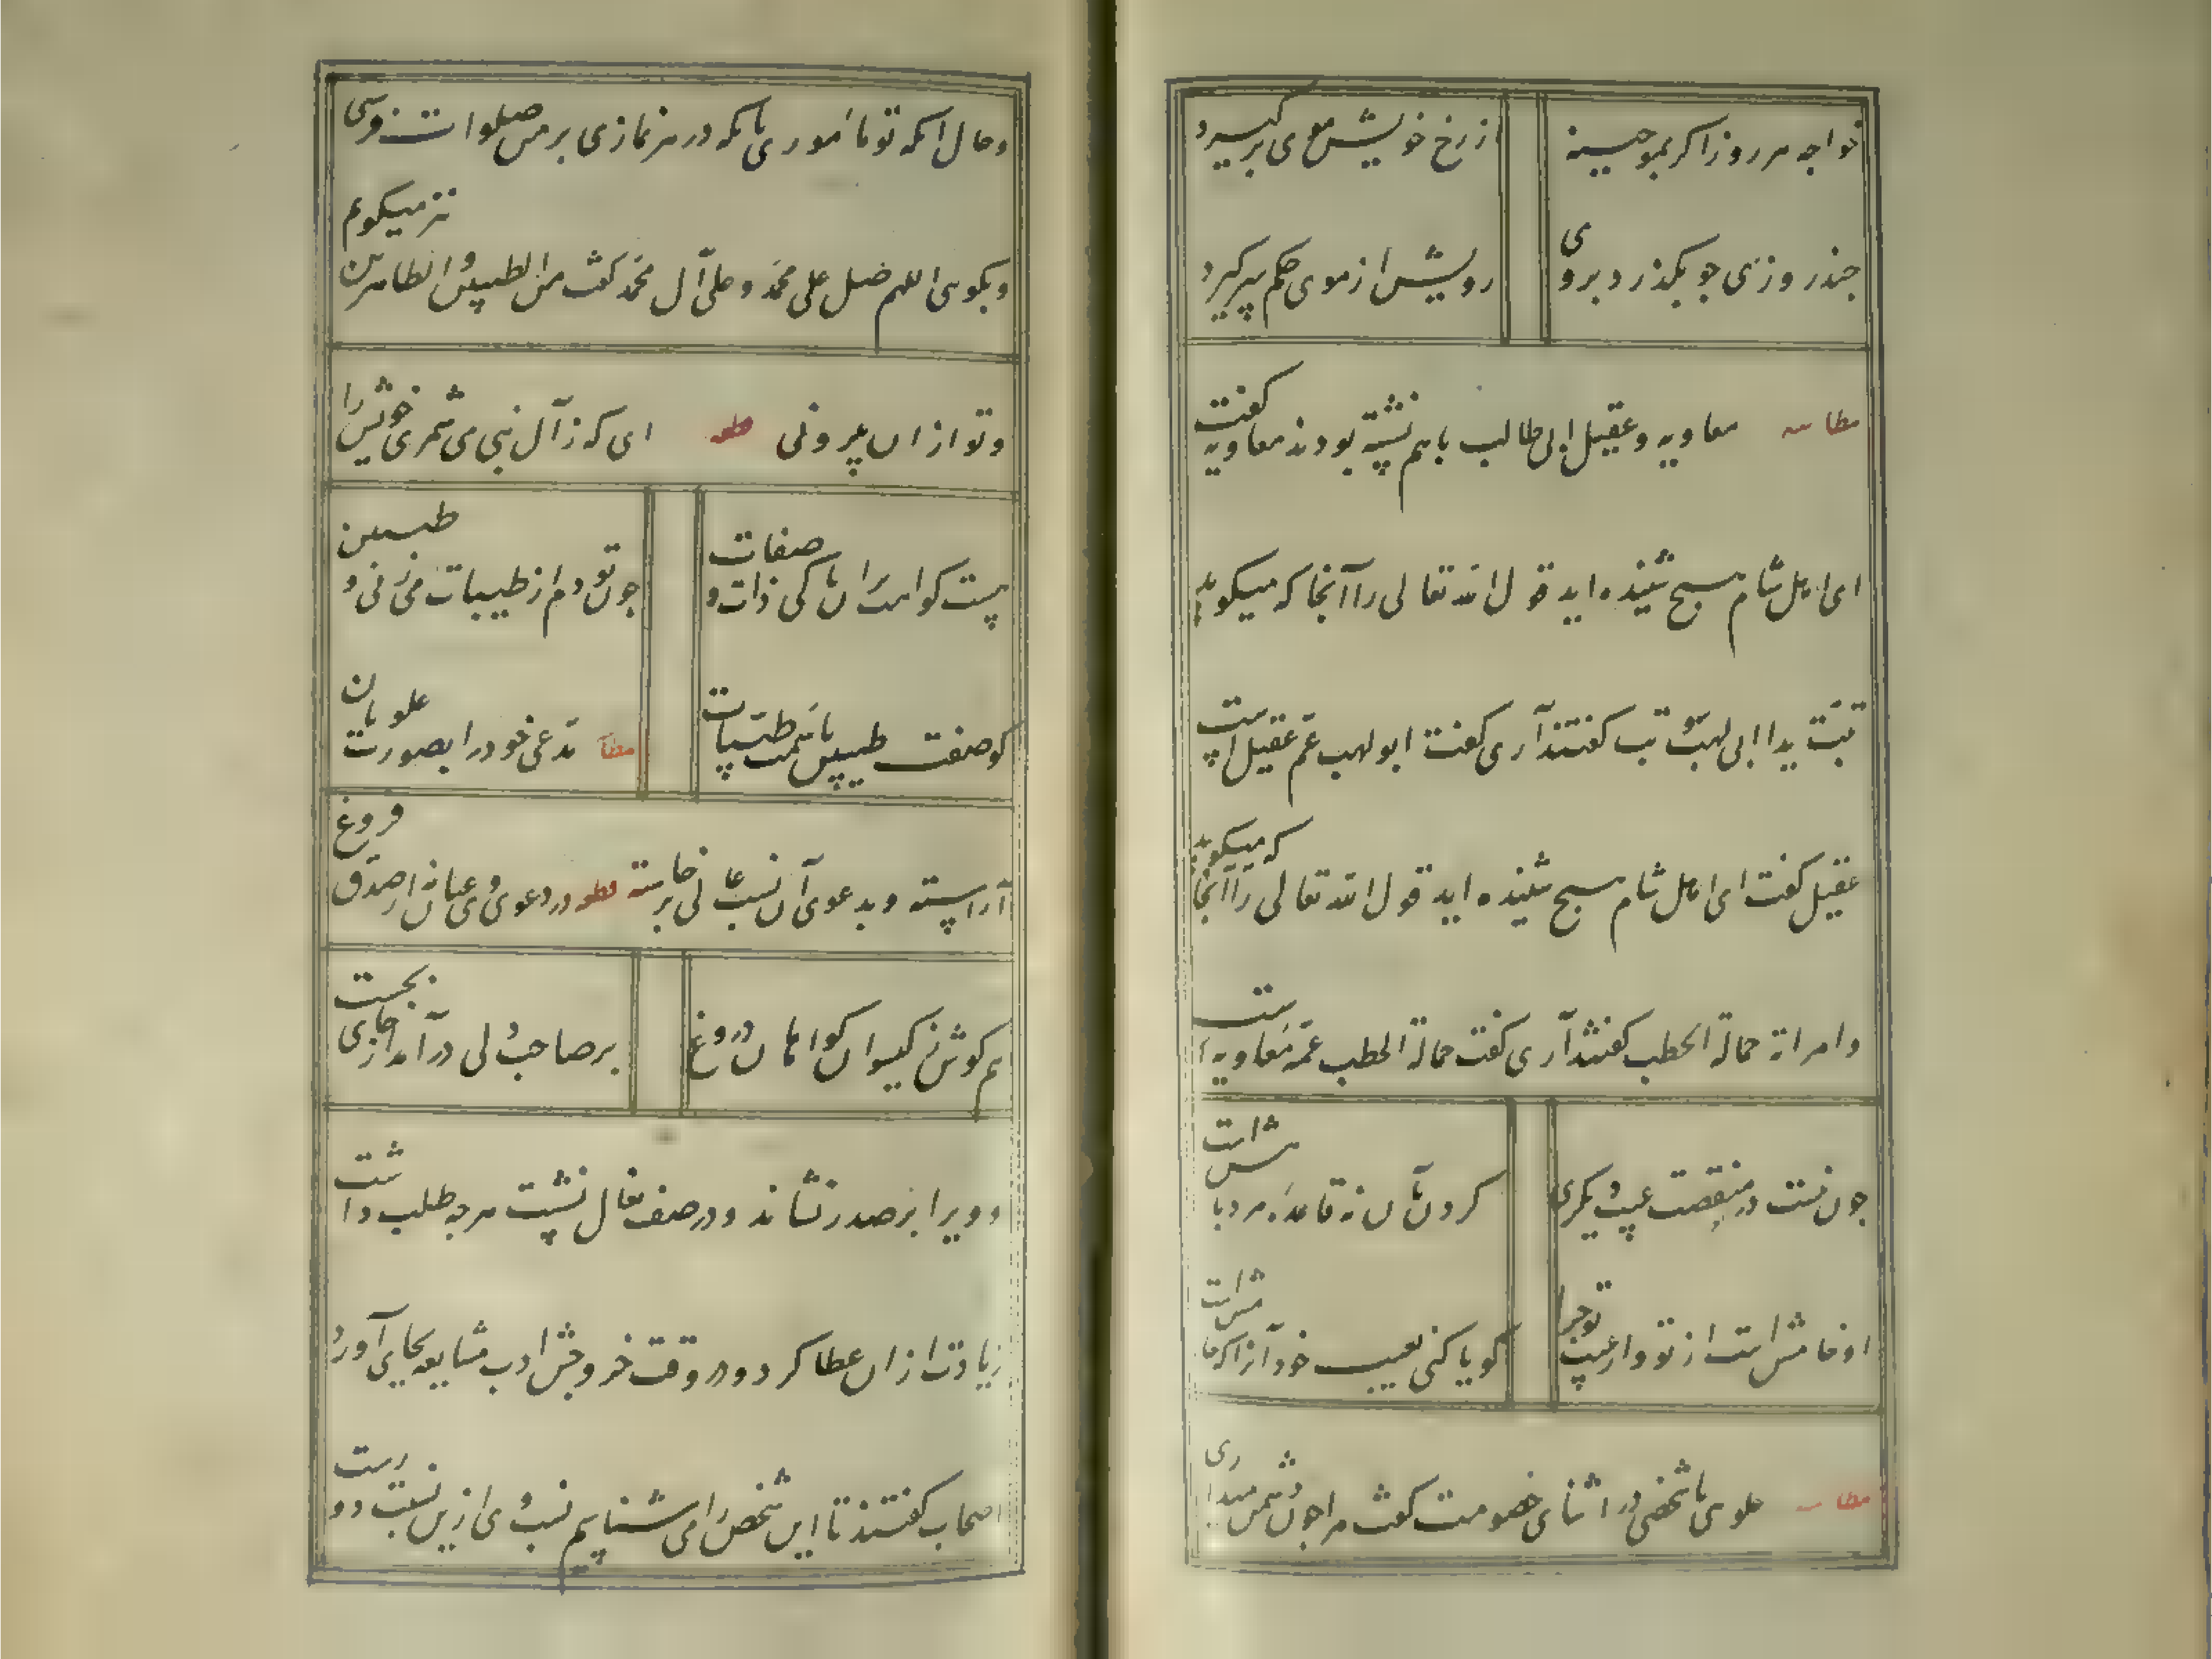 خواجه هر روز اگر بموچینه
از رخ خویش موی برگیرد
چند روزی چو بگذرد بروی
رویش از موی حکم سر گیرد
مطایبه معاویه و عقیل ابی طالب با هم نشسته بودند معاویه گفت
ای اهل شام هیچ شنیده اید قول الله تعالی را آنجا که میگوید
تبت یدا ابی لهب و تب گفتند آری گفت ابو لهب عم عقیل است
عقیل گفت ای اهل شام هیچ شنیده اید قول الله تعالی را آنجا که میگوید
و امراته حمالة الحطب گفتند آری گفت حمالة الحطب عمه معاویه است
چون نیست در منقصت عیب دیگری
کردن بآن نه قاعده مرد با
او خامش است از تو و از عیب تو چرا
گویا کنی بعیب خود آنرا که خامش است
مطایبه علوی با شخصی در اثنای خصومت گفت مرا چون دشمن میداری
و حال آنکه تو ماموری بآنکه در هر نمازی بر من صلوات فرستی
و بگوی اللهم صل علی محمد و علی آل محمد گفت من الطیبین و الطاهرین نیز میگویم
و تو از آن بیرونی قطعه ای که ز آل نبی می شمری خویش را
نیست گواهت بر آن پاکی ذات و صفات
چون تو دم از طیبات می زنی و طیبین
کو صفت طیبین یا سمت طیبات
مطایبه مدعی خود را بصورت علویان
آراسته و بدعوی آن نسب عالی برخاسته قطعه در دعوی وی عیان نه از صدق فروغ
هم گوش زد گیسوان گواهان دروغ
بر صاحب دلی درآمد از جای بجست
و ویرا بر صدر نشاند و در صف نعال نشست هر چه طلب داشت
زیادت از آن عطا کرد و در وقت خروجش ادب مشایعه بجای آورد
اصحاب گفتند ما این شخص را می شناسیم نسب وی ازین نسبت دورست